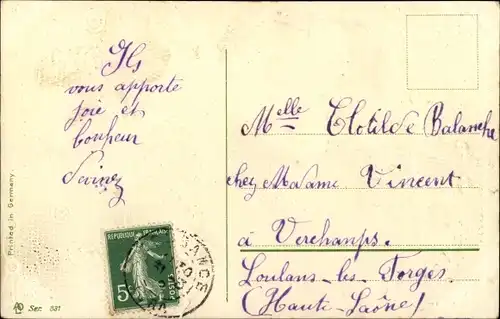 Ils
vous apporte
joie et
bonheur
Melle Clotilde Balanche
chez Madame Vincent
à Verchamps.
Loulans-les Forges
(Haute-Saône)
RÉPUBLIQUE FRANÇAISE
5
POSTES
Printed in Germany
Ser. 331